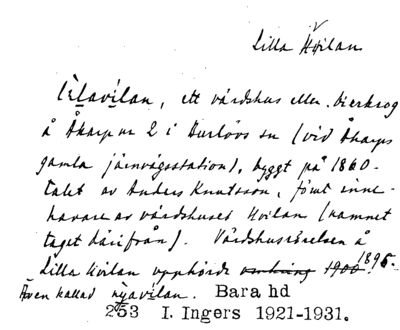 Lilla Hvilan
Lìlavílan, ett värdshus eller bierkrog
å Åkarp nr 2 i Burlövs sn (vid Åkarps
gamla järnvägsstation), byggt på 1860-
talet av Anders Knutsson, förut inne-
havare av värdshuset Hvilan (namnet
taget härifrån). Värdshusrörelsen å
Lilla Hvilan upphörde omkring 1900 1895.
Även kallad nỳavílan. Bara hd
253 I. Ingers 1921-1931.